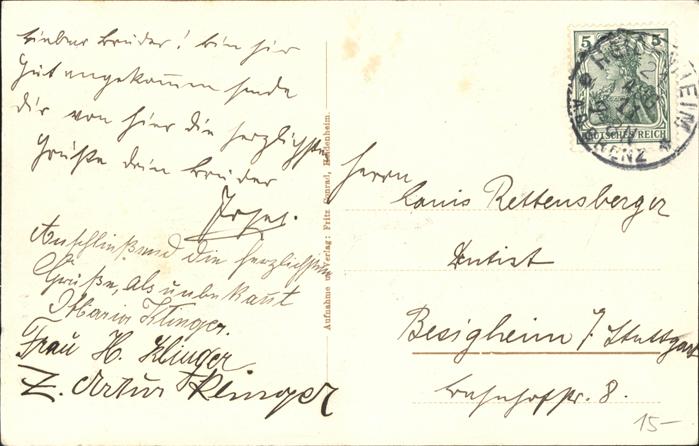 Lieber Bruder! bin hir
Gut angekommen sende
dir von hier die herzlichsten
Grüße dein bruder
Josef.
Anschließend die herzlichsten
Grüße, als unbekant
Maria Klinger.
Frau H. Klinger
Z. Artur Klinger
Aufnahme u. Verlag: Fritz Conrad, Heidenheim.
5 5
DEUTSCHES REICH
HEIDENHEIM
Herrn
Louis Rettensberger
Dentist
Besigheim / Stuttgart
Bahnhofstr. 8.
15-